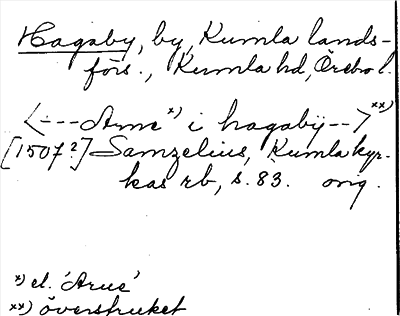 Hagaby, by, Kumla lands-
förs., Kumla hd, Örebro l.
<---Arne *) i hagabÿ--> **)
[1507?] Samzelius, Kumla kyr-
kas rb, s. 83. orig.
*) el. 'Arue'
**) överstruket